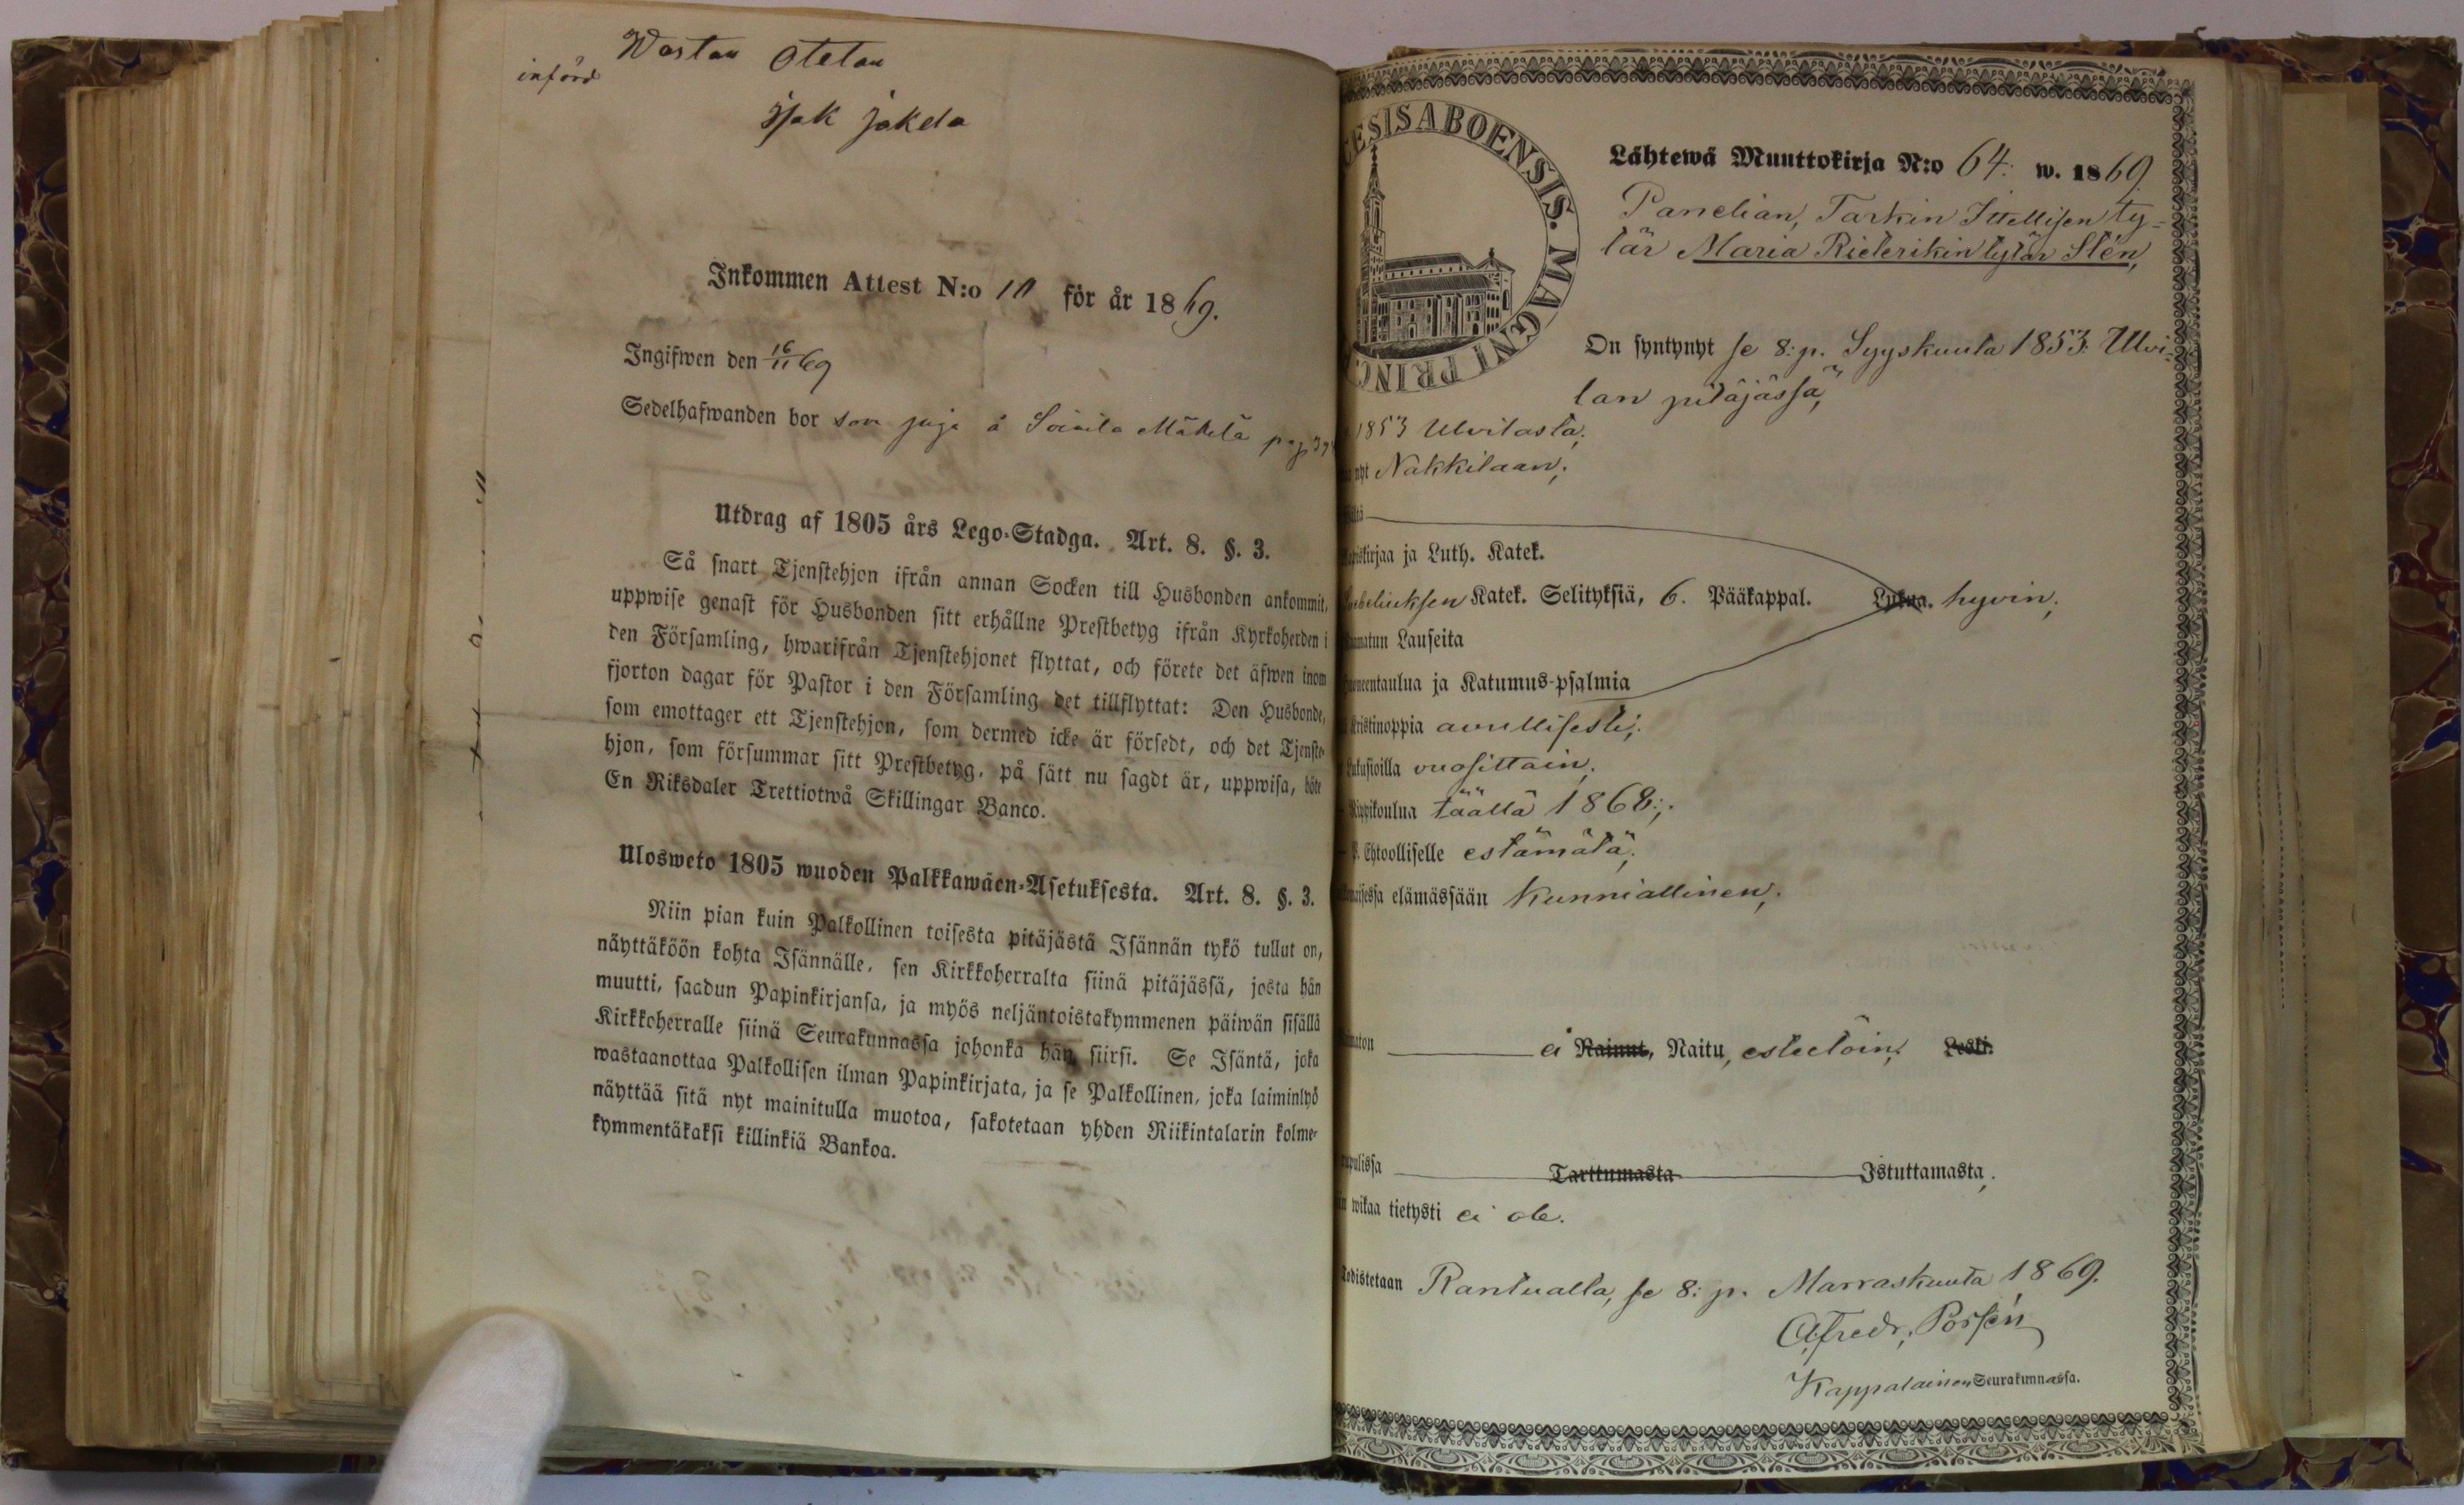 Wastan otetan
införd
Isak jakela
Inkommen Attest N:o 10 för år 1869.
Ingifwen den 16/11 69
Sedelhafwanden bor som piga å Soinila Mäkelä pag
Utdrag af 1805 års Lego-Stadga. Art. 8. §. 3.
Så snart Tjenstehjon ifrån annan Socken till Husbonden ankommit,
uppwise genast för Husbonden sitt erhållne Prestbetyg ifrån Kyrkoherden i
den Församling, hwarifrån Tjenstehjonet flyttat, och förete det äfwen inom
fjorton dagar för Pastor i den Församling det tillflyttat: Den Husbonde,
som emottager ett Tjenstehjon, som dermed icke är försedt, och det Tjenste-
hjon, som försummar sitt Prestbetyg, på sätt nu sagdt är, uppwisa, böte
En Riksdaler Trettiotwå Skillingar Banco.
Ulosweto 1805 wuoden Palkkawäen-Asetuksesta. Art. 8. §. 3.
Niin pian kuin Palkollinen toisesta pitäjästä Isännän tykö tullut on,
näyttäköön kohta Isännälle, sen Kirkkoherralta siinä pitäjässä, josta hän
muutti, saadun Papinkirjansa, ja myös neljäntoistakymmenen päiwän sisällä
Kirkkoherralle siinä Seurakunnassa johonka hän siirsi. Se Isäntä, joka
wastaanottaa Palkollisen ilman Papinkirjata, ja se Palkollinen, joka laiminlyö
näyttää sitä nyt mainitulla muotoa, sakotetaan yhden Riikintalarin kolme-
kymmentäkaksi killinkiä Bankoa.
ESIS ABOENSIS. MAGNI PRINC
Lähtewä Muuttokirja N:o 64. w. 1869.
Panelian, Tarkin Ittellisen ty-
tär Maria Riederikin tytär Stén,
On syntynyt se 8:p. Syyskuuta 1853. Ulvi-
lan pitäjässä,
1853 Ulvilasta;
nyt Nakkilaan;
kirjaa ja Luth. Katek.
Katek. Selityksiä, 6. Pääkappal. Lukua. hyvin;
Lauseita
taulua ja Katumus-psalmia
kristinoppia avullisesti;
Lukusioilla vuosittain;
Rippikoulua täällä 1868;
Ehtoolliselle estämätä;
elämässään kunniallinen;
ei Nainut, Naitu, esteetöin; Leski.
Tarttumasta Istuttamasta,
wikaa tietysti ei ole.
Todistetaan Rantualla, se 8:p. Marraskuuta 1869.
Alfredr, Porsén
Kappalainen Seurakunnassa.